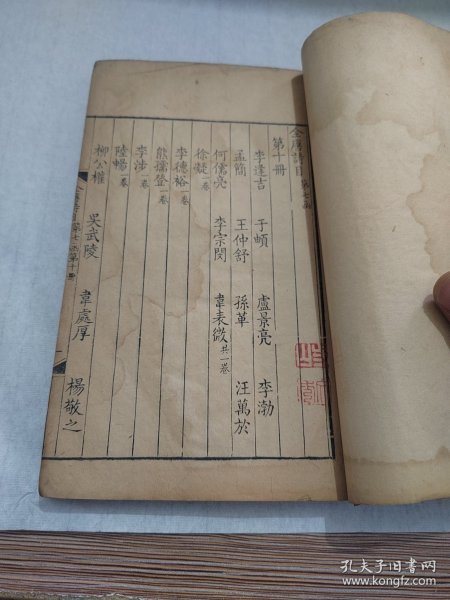 全唐詩目
第十冊
李逢吉 于頔 盧景亮 李渤
孟簡 王仲舒 孫革 汪萬於
何儒亮 李宗閔 韋表微共一卷
徐凝一卷
李德裕一卷
熊孺登一卷
李涉一卷
陸暢一卷
柳公權 吳武陵 韋處厚 楊敬之
孔夫子旧书网
www.kongfz.com